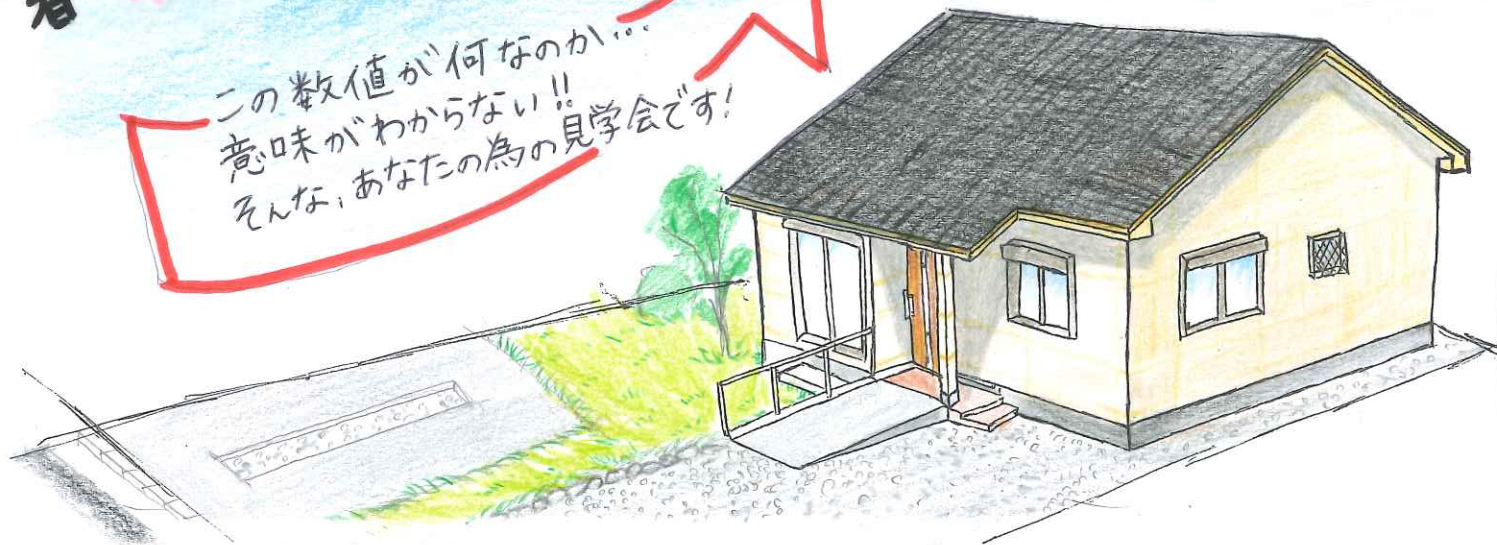 この数値が何なのか…
意味がわからない!!
そんな、あなたの為の見学会です!